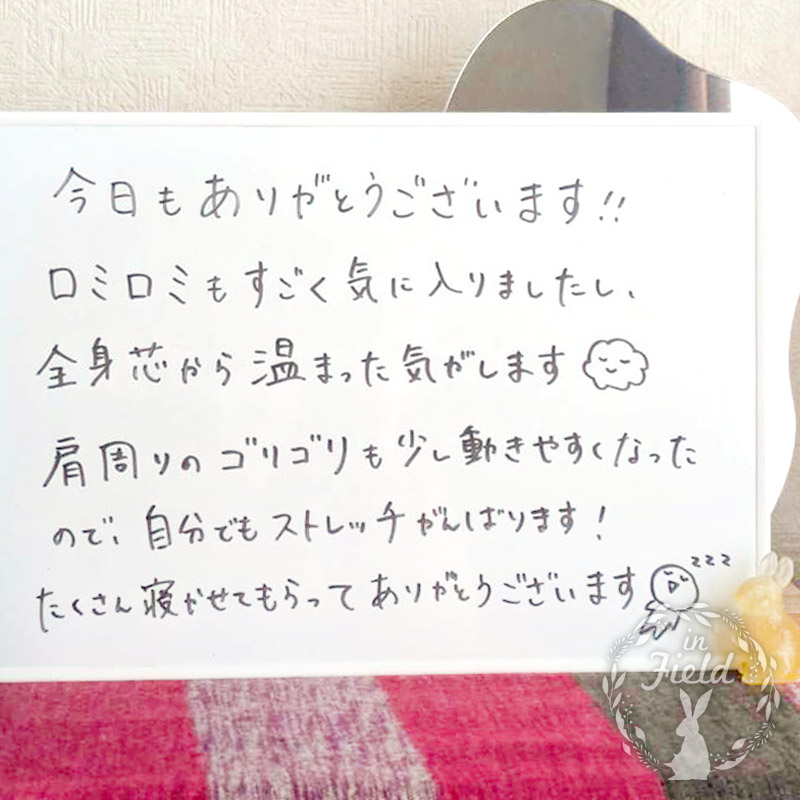 今日もありがとうございます!!
ロミロミもすごく気に入りましたし、
全身芯から温まった気がします
肩周りのゴリゴリも少し動きやすくなった
ので、自分でもストレッチがんばります!
たくさん寝かせてもらってありがとうございます
zzz
in
Field